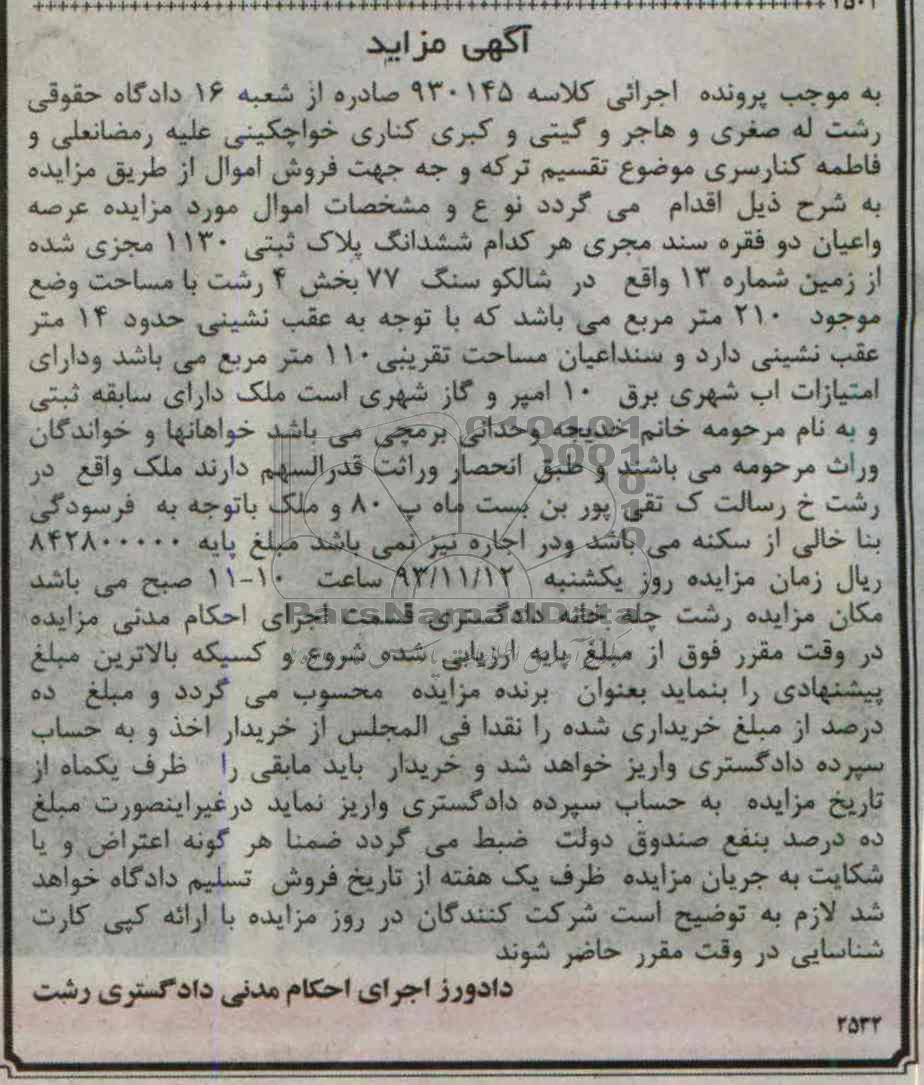 ۲۵۰۱
آگهی مزاید
به موجب پرونده اجرائی کلاسه ۹۳۰۱۴۵ صادره از شعبه ۱۶ دادگاه حقوقی
رشت له صغری و هاجر و گیتی و کبری کناری خواچکینی علیه رمضانعلی و
فاطمه کنارسری موضوع تقسیم ترکه و جه جهت فروش اموال از طریق مزایده
به شرح ذیل اقدام می گردد نو ع و مشخصات اموال مورد مزایده عرصه
واعیان دو فقره سند مجری هر کدام ششدانگ پلاک ثبتی ۱۱۳۰ مجزی شده
از زمین شماره ۱۳ واقع در شالکو سنگ ۷۷ بخش ۴ رشت با مساحت وضع
موجود ۲۱۰ متر مربع می باشد که با توجه به عقب نشینی حدود ۱۴ متر
عقب نشینی دارد و سنداعیان مساحت تقریبی ۱۱۰ متر مربع می باشد ودارای
امتیازات اب شهری برق ۱۰ امپر و گاز شهری است ملک دارای سابقه ثبتی
و به نام مرحومه خانم خدیجه وحدانی برمچی می باشد خواهانها و خواندگان
وراث مرحومه می باشند و طبق انحصار وراثت قدرالسهم دارند ملک واقع در
رشت خ رسالت ک تقی پور بن بست ماه پ ۸۰ و ملک باتوجه به فرسودگی
بنا خالی از سکنه می باشد ودر اجاره نیر نمی باشد مبلغ پایه ۸۴۲۸۰۰۰۰۰
ریال زمان مزایده روز یکشنبه ۹۳/۱۱/۱۲ ساعت ۱۰-۱۱ صبح می باشد
مکان مزایده رشت چله خانه دادگستری قسمت اجرای احکام مدنی مزایده
در وقت مقرر فوق از مبلغ پایه ارزیابی شده شروع و کسیکه بالاترین مبلغ
پیشنهادی را بنماید بعنوان برنده مزایده محسوب می گردد و مبلغ ده
درصد از مبلغ خریداری شده را نقدا فی المجلس از خریدار اخذ و به حساب
سپرده دادگستری واریز خواهد شد و خریدار باید مابقی را ظرف یکماه از
تاریخ مزایده به حساب سپرده دادگستری واریز نماید درغیراینصورت مبلغ
ده درصد بنفع صندوق دولت ضبط می گردد ضمنا هر گونه اعتراض و یا
شکایت به جریان مزایده ظرف یک هفته از تاریخ فروش تسلیم دادگاه خواهد
شد لازم به توضیح است شرکت کنندگان در روز مزایده با ارائه کپی کارت
شناسایی در وقت مقرر حاضر شوند
دادورز اجرای احکام مدنی دادگستری رشت
۲۵۳۲